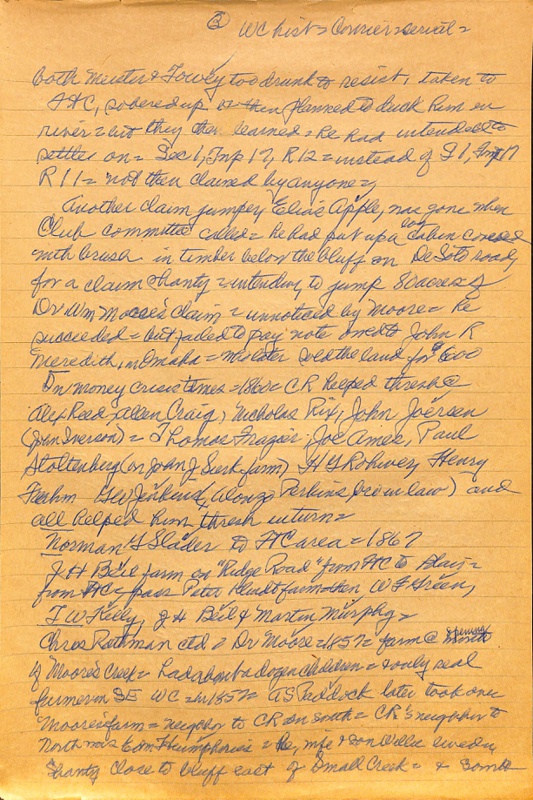 ③ WC hist = Courier = serial =
both Meister & Fowley too drunk to resist, taken to
FtC, sobered up & then planned to duck him in
river = but they then learned = he had intended to
settle on = Sec 1, Tnp 17, R 12 = instead of S 1, Tnp 17
R 11 = not then claimed by anyone =,
Another claim jumper, Elias Apple, was gone when
Club committee called = he had put up a log cabin covered
with brush in timber below the bluff on De Soto road
for a claim shanty = intending to jump 80 acres of
Dr Wm Moore's claim = unnoticed by Moore = he
succeeded = but failed to pay note owed to John R
Meredith, in Omaha = who later sold the land for $600
In money crisis times = 1860 = CR helped thresh @
Alex Reed, Allen Craig, Nicholas Rix, John Joersen
(John Iverson) = Thomas Frazier, Joe Aimes, Paul
Stoltenberg (on John J Sierk farm) H G Rohwer, Henry
Frahm G W Jenkins, (Alonzo Perkins, bro in law) and
all helped him thresh in turn =
Norman S Slader to FtC area = 1867
J H Beil farm on "Ridge Road" from FtC to Blair =
from FtC = pass Peter Kludt farm then W F Green,
T W Kelly, J H Beil & Martin Murphy =
Chris Rathman ctd @ Dr Moore = 1857 = farm @ spring
of Moores Creek = had about a dozen children = & only real
farmer in SE WC = in 1857 = A S Paddock later took one
Moore farm = neighbor to CR on south = CR's neighbor to
north was Eom Humphries = he, wife & son Ollie lived in
shanty close to bluff east of Small Creek = &